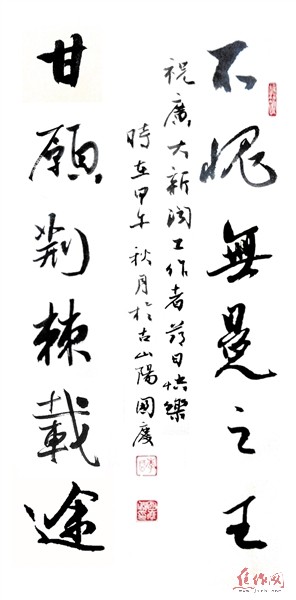 不愧無冕之王
祝廣大新闻工作者节日快樂
時在甲午秋月於古山陽國慶
甘願荆棘載途
焦作网